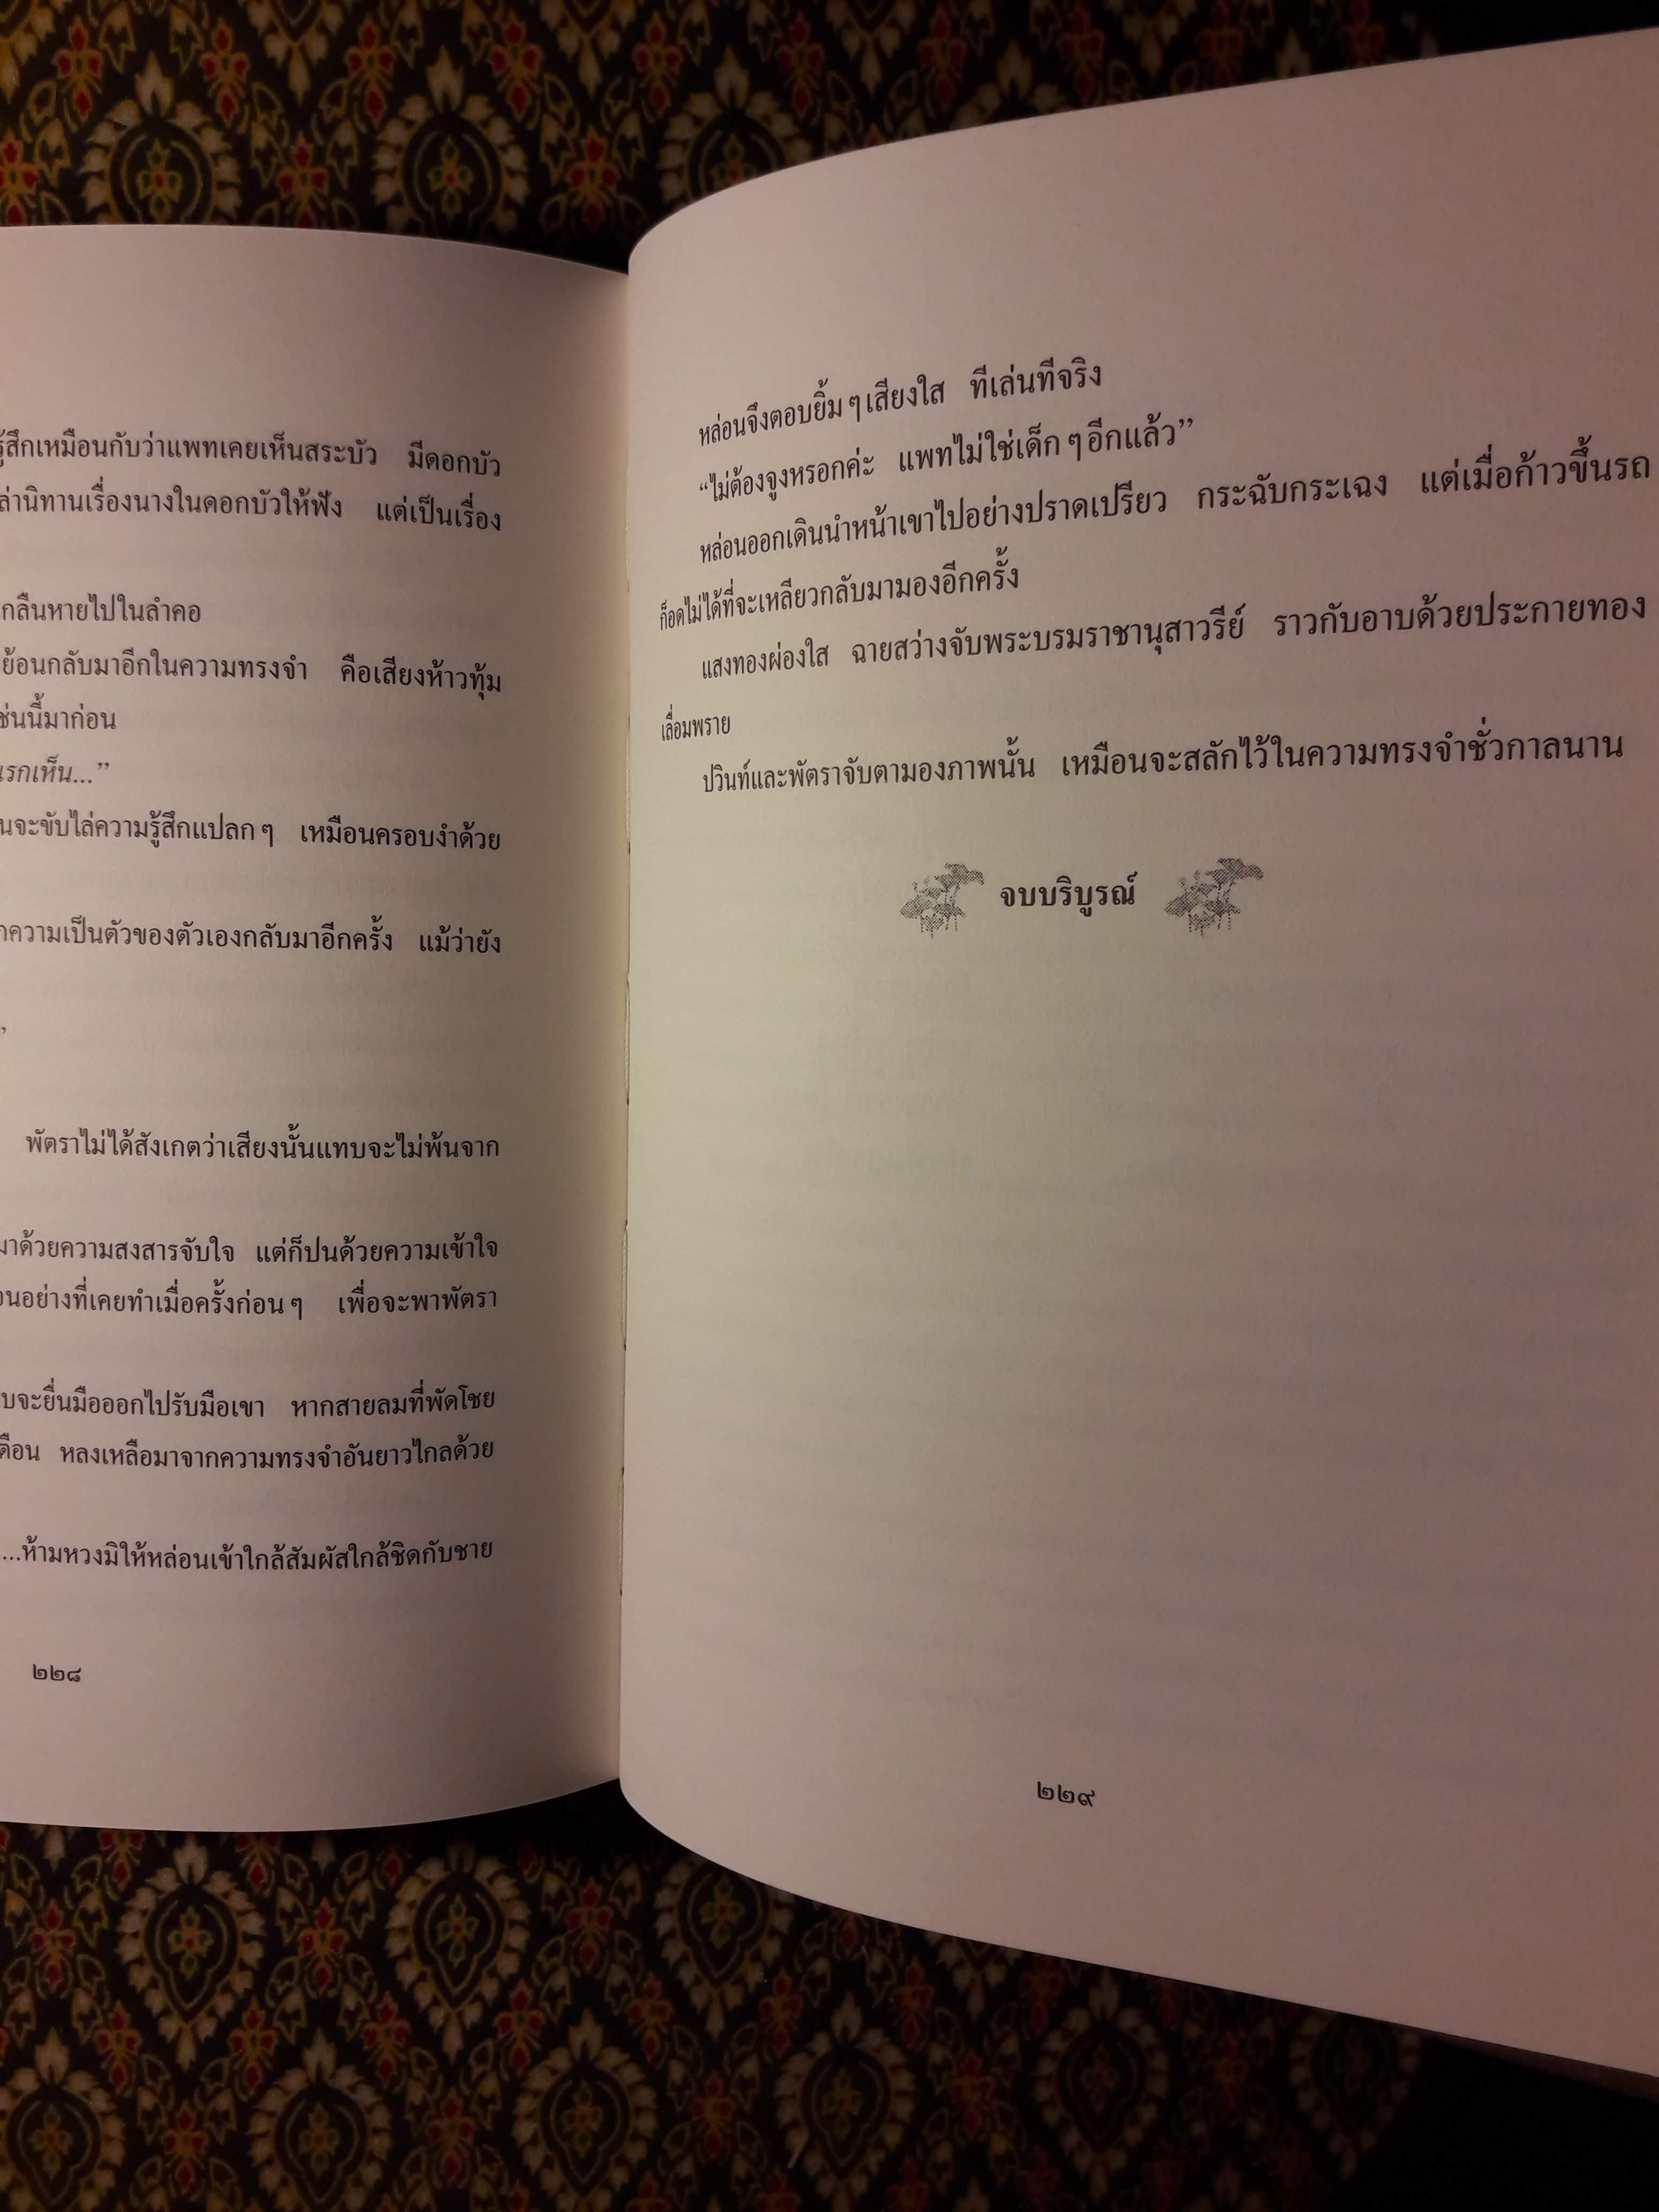 รู้สึกเหมือนกับว่าแพทเคยเห็นสระบัว มีดอกบัว
ล่านิทานเรื่องนางในดอกบัวให้ฟัง แต่เป็นเรื่อง
กลืนหายไปในลำคอ
ย้อนกลับมาอีกในความทรงจำ คือเสียงห้าวทุ้ม
ช่นนี้มาก่อน
รกเห็น...”
นจะขับไล่ความรู้สึกแปลก ๆ เหมือนครอบงำด้วย
ความเป็นตัวของตัวเองกลับมาอีกครั้ง แม้ว่ายัง
”
พัตราไม่ได้สังเกตว่าเสียงนั้นแทบจะไม่พ้นจาก
มาด้วยความสงสารจับใจ แต่ก็ปนด้วยความเข้าใจ
อนอย่างที่เคยทำเมื่อครั้งก่อน ๆ เพื่อจะพาพัตรา
บจะยื่นมือออกไปรับมือเขา หากสายลมที่พัดโชย
ตือน หลงเหลือมาจากความทรงจำอันยาวไกลด้วย
...ห้ามหวงมิให้หล่อนเข้าใกล้สัมผัสใกล้ชิดกับชาย
๒๒๘
หล่อนจึงตอบยิ้ม ๆ เสียงใส ทีเล่นทีจริง
“ไม่ต้องจูงหรอกค่ะ แพทไม่ใช่เด็ก ๆ อีกแล้ว”
หล่อนออกเดินนำหน้าเขาไปอย่างปราดเปรียว กระฉับกระเฉง แต่เมื่อก้าวขึ้นรถ
ก็อดไม่ได้ที่จะเหลียวกลับมามองอีกครั้ง
แสงทองผ่องใส ฉายสว่างจับพระบรมราชานุสาวรีย์ ราวกับอาบด้วยประกายทอง
เลื่อมพราย
ปวินท์และพัตราจับตามองภาพนั้น เหมือนจะสลักไว้ในความทรงจำชั่วกาลนาน
จบบริบูรณ์
๒๒๙